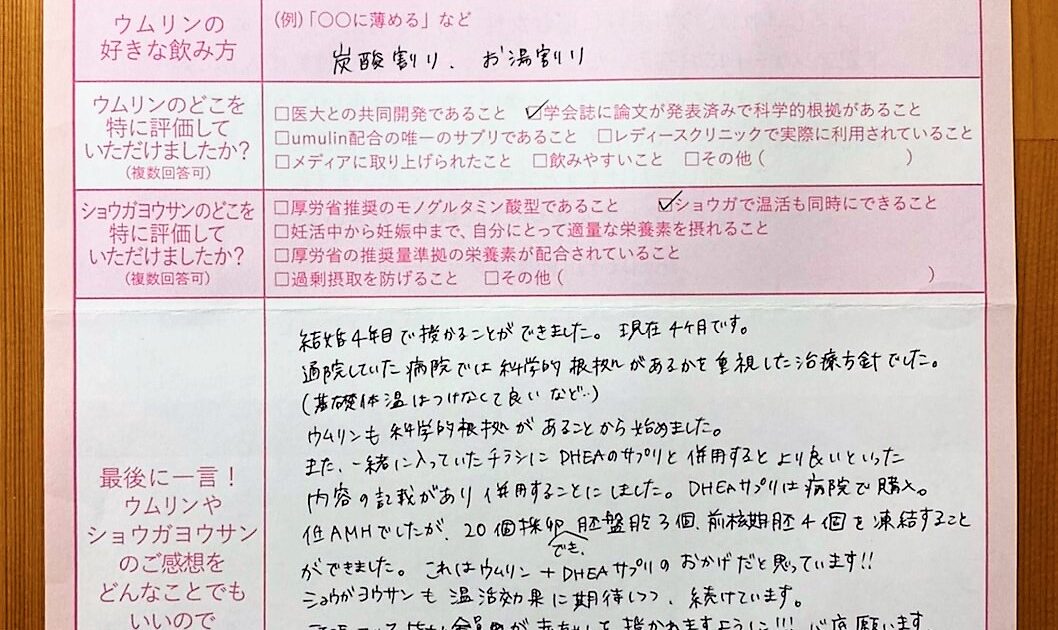 ウムリンの
好きな飲み方
(例)「〇〇に薄める」など
炭酸割り、お湯割り
ウムリンのどこを
特に評価して
いただけましたか?
(複数回答可)
□医大との共同開発であること ☑学会誌に論文が発表済みで科学的根拠があること
□umulin配合の唯一のサプリであること □レディースクリニックで実際に利用されていること
□メディアに取り上げられたこと □飲みやすいこと □その他( )
ショウガヨウサンのどこを
特に評価して
いただけましたか?
(複数回答可)
□厚労省推奨のモノグルタミン酸型であること ☑ショウガで温活も同時にできること
□妊活中から妊娠中まで、自分にとって適量な栄養素を摂れること
□厚労省の推奨量準拠の栄養素が配合されていること
□過剰摂取を防げること □その他( )
最後に一言!
ウムリンや
ショウガヨウサン
のご感想を
どんなことでも
いいので
結婚4年目で授かることができました。現在4ヶ月です。
通院していた病院では科学的根拠があるかを重視した治療方針でした。
(基礎体温はつけなくて良いなど…)
ウムリンも科学的根拠があることから始めました。
また、一緒に入っていたチラシにDHEAのサプリと併用するとより良いといった
内容の記載があり併用することにしました。DHEAサプリは病院で購入。
低AMHでしたが、20個採卵でき、胚盤胞3個、前核期胚4個を凍結すること
ができました。これはウムリン+DHEAサプリのおかげだと思っています!!
ショウガヨウサンも温活効果に期待しつつ、続けています。